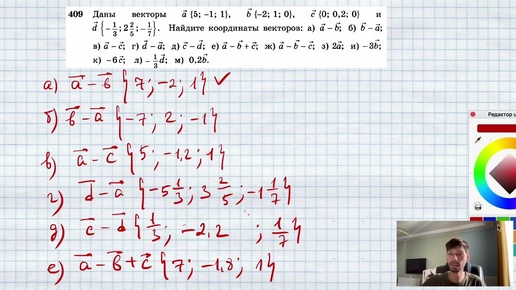 409 Даны векторы a⃗ {5; −1; 1}, b⃗ {−2; 1; 0}, c⃗ {0; 0,2; 0} и
d⃗ {−1/3; 2 2/5; −1/7}. Найдите координаты векторов: а) a⃗ − b⃗; б) b⃗ − a⃗;
в) a⃗ − c⃗; г) d⃗ − a⃗; д) c⃗ − d⃗; е) a⃗ − b⃗ + c⃗; ж) a⃗ − b⃗ − c⃗; з) 2a⃗; и) −3b⃗;
к) −6c⃗; л) −1/3 d⃗; м) 0,2b⃗.
а) a⃗ − b⃗ {7; −2; 1} ✓
б) b⃗ − a⃗ {−7; 2; −1}
в) a⃗ − c⃗ {5; −1,2; 1}
г) d⃗ − a⃗ {−5 1/3; 3 2/5; −1 1/7}
д) c⃗ − d⃗ {1/3; −2,2 ; 1/7}
е) a⃗ − b⃗ + c⃗ {7; −1,8; 1}
Редактор ц